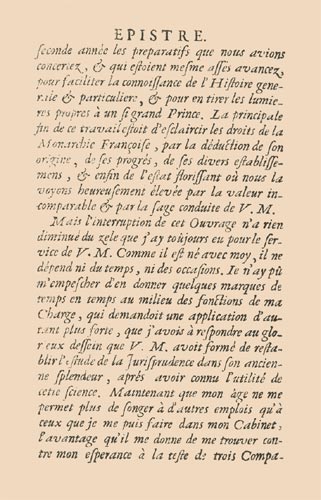 EPISTRE.
seconde année les preparatifs que nous avions
concertez, & qui estoient mesme assés avancez,
pour faciliter la connoissance de l'Histoire gene-
rale & particuliere, & pour en tirer les lumie-
res propres à un si grand Prince. La principale
fin de ce travail estoit d'esclaircir les droits de la
Monarchie Françoise, par la déduction de son
origine, de ses progrés, de ses divers establisse-
mens, & enfin de l'estat florissant où nous la
voyons heureusement élevée par la valeur in-
comparable & par la sage conduite de V. M.
Mais l'interruption de cet Ouvrage n'a rien
diminué du zele que j'ay toûjours eu pour le ser-
vice de V. M. Comme il est né avec moy, il ne
dépend ni du temps, ni des occasions. Ie n'ay pû
m'empescher d'en donner quelques marques de
temps en temps au milieu des fonctions de ma
Charge, qui demandoit une application d'au-
tant plus forte, que j'avois à respondre au glo-
rieux dessein que V. M. avoit formé de resta-
blir l'estude de la Jurisprudence dans son ancien-
ne splendeur, aprés avoir connu l'utilité de
cette science. Maintenant que mon âge ne me
permet plus de songer à d'autres emplois qu'à
ceux que je me puis faire dans mon Cabinet,
l'avantage qu'il me donne de me trouver con-
tre mon esperance à la teste de trois Compa-